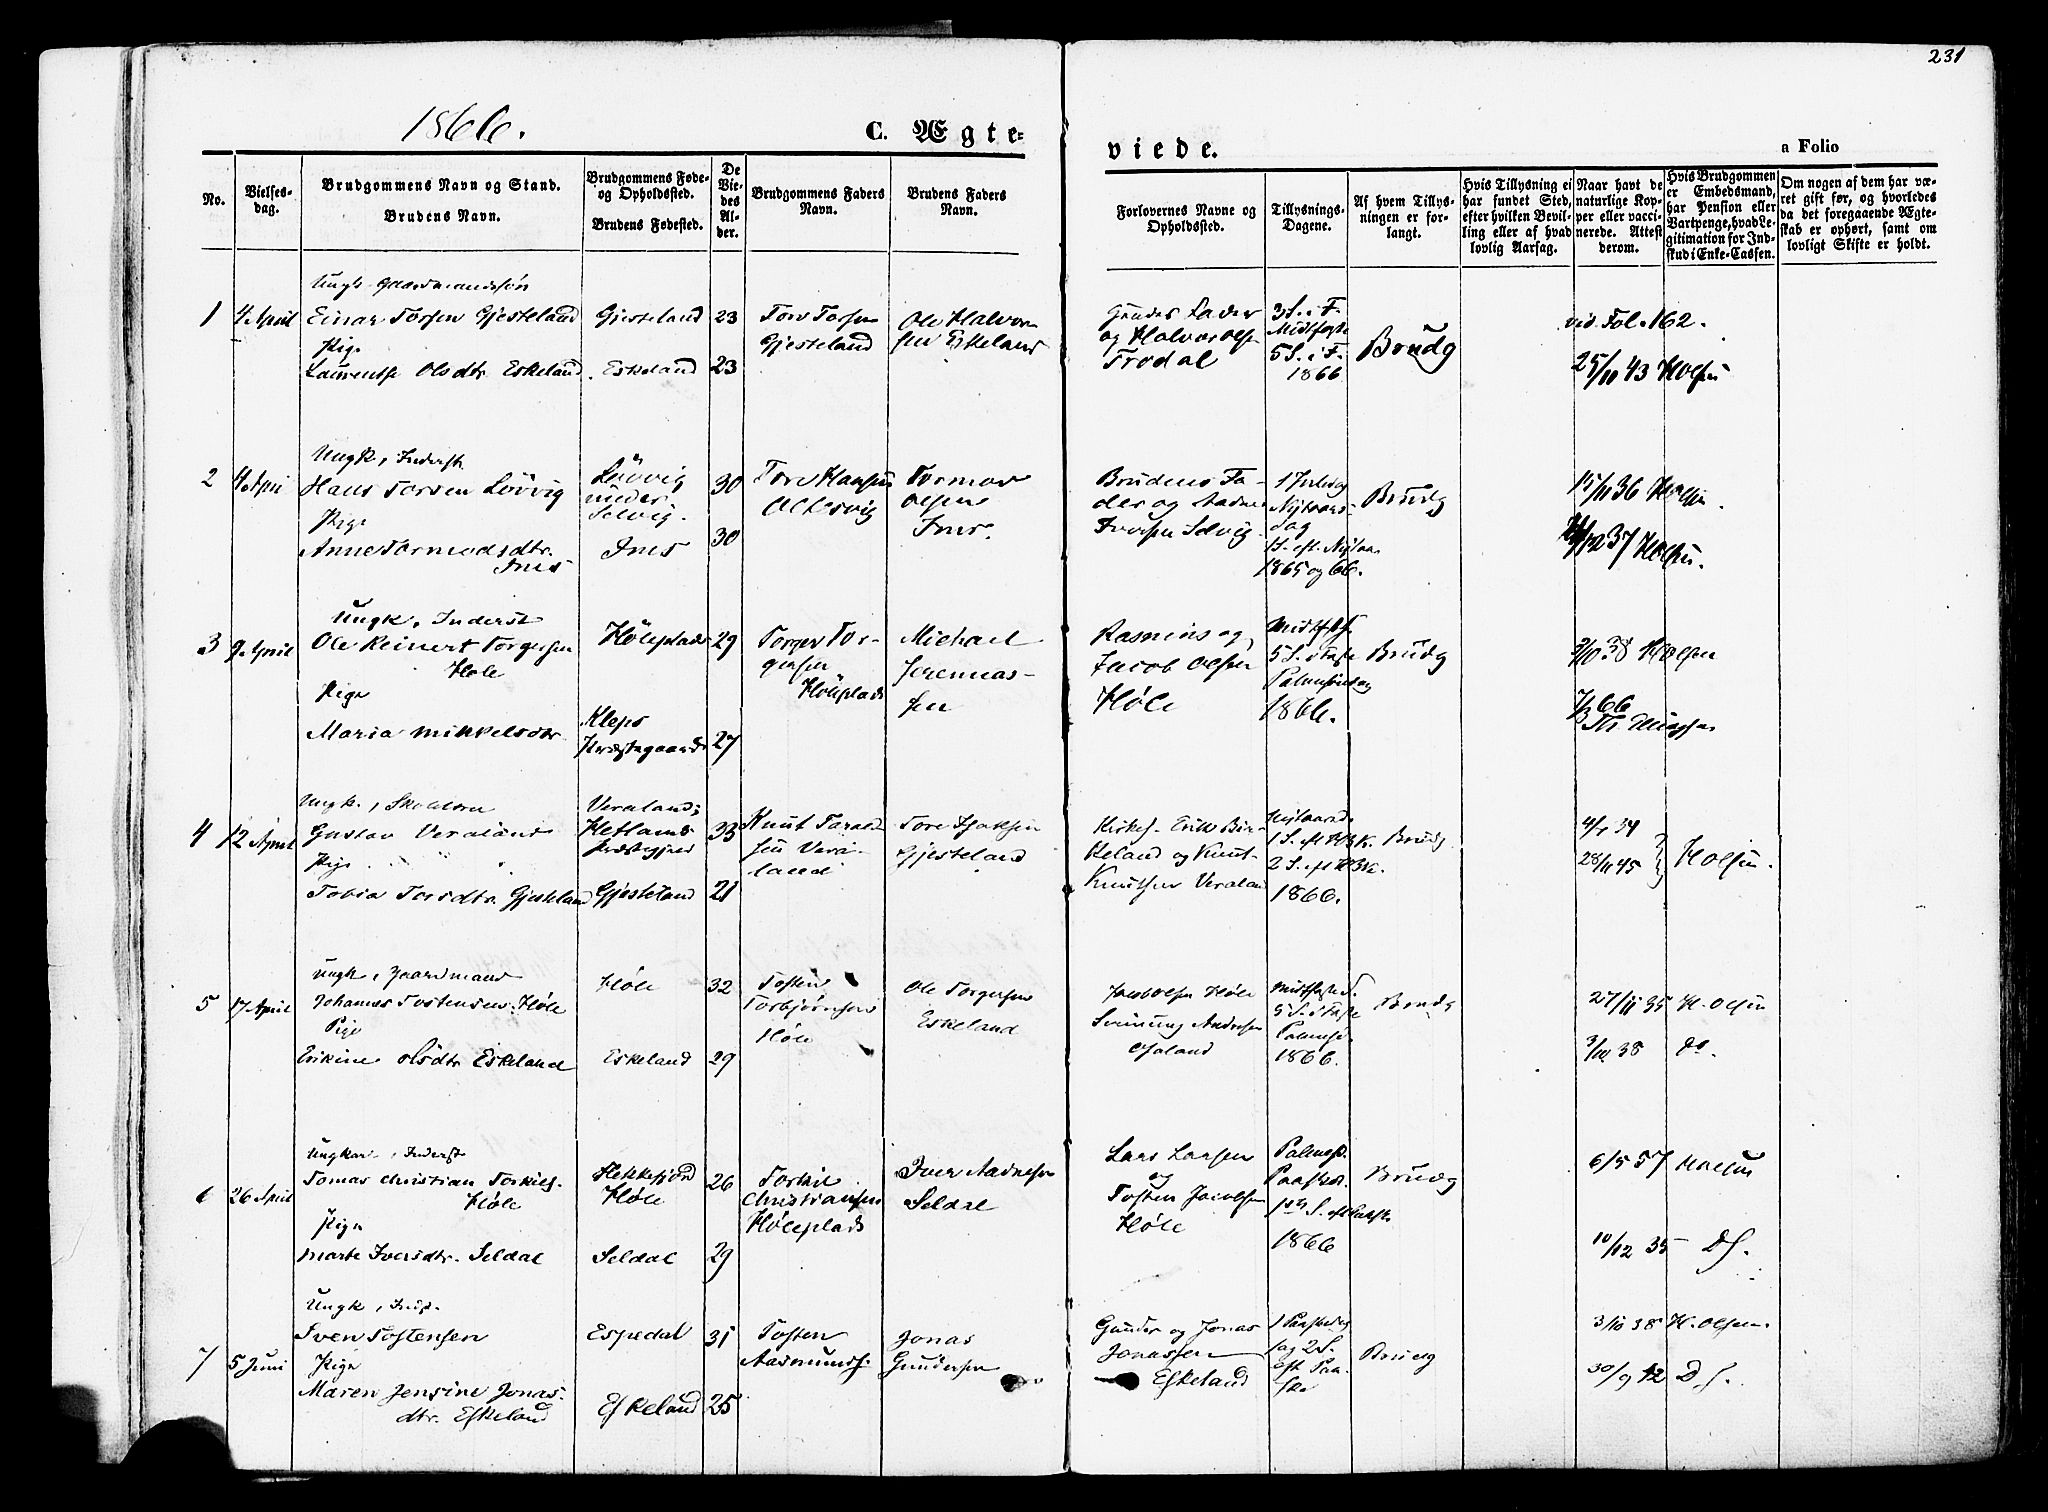 231
1866.
C. Ægte-
viede.
a Folio
No.
Vielses-
dag.
Brudgommens Navn og Stand.
Brudens Navn.
Brudgommens Føde-
og Opholdssted.
Brudens Fødested.
De
Vie-
des
Al-
der.
Brudgommens Faders
Navn.
Brudens Faders
Navn.
Forlovernes Navne og
Opholdssted.
Tillysnings-
Dagene.
Af hvem Tillys-
ningen er for-
langt.
Hvis Tillysning ei
har fundet Sted,
efter hvilken Bevil-
ling eller af hvad
lovlig Aarsag.
Naar havt de
naturlige Kop-
per eller vacci-
nerede. Attest
derom.
Hvis Brudgommen
er Embedsmand,
har Pension eller
Vartpenge, hvad Le-
gitimation for Ind-
skud i Enke-Cassen.
Om nogen af dem har væ-
ret gift før, og hvorledes
da det foregaaende Ægte-
skab er ophørt, samt om
lovligt Skifte er holdt.
1
4 April
Ungk. Gaardmandssøn
Einar Torsen Gjesteland
Pige
Laurentse Olsdtr Eskeland
Gjesteland
Eskeland
23
23
Tore Torsen
Gjesteland
Ole Halvor
sen Eskeland
Gunder
og Halvor Olsen
Frodal
3 S. i F.
Midtfaste
5 S. i F.
1866
Brudg
vid. Fol. 162.
25/11 43 H Olsen
2
4 April
Ungk, Inderst
Hans Torsen Løvvig
Pige
Anne Tormodsdtr.
Ims
Løvvig
under
Selvig.
Ims
30
30
Tore Hansen
Oltesvig
Tormod
Olsen
Ims.
Brudens Fa-
der og Aadne
Iversen Selvig
1 Juledag
Nytaars-
dag
1 S. eft. Nytaar
1865 og 66.
Brudg
15/11 36 H Olsen
12 37 H Olsen.
3
9 April
Ungk, Inderst
Ole Reinert Torgersen
Høle
Pige
Maria Mikkelsdtr
Høleplads
Kleps
Præstegaard
29
27
Torger Tor-
gersen
Høleplads
Michael
Jeremias-
sen
Rasmus og
Jacob Olsen
Høle
Midtfaste
5 S. i Faste
Palmsøndag
1866.
Brudg
3/10 38 H Olsen
66
4
12 April
Ungk.,
Gustav Veraland
Pige
Tobia Torsdtr. Gjesteland
Veraland,
Hetlands
Præstegjeld
Gjesteland
33
21
Knut Tarald
sen Vera-
land
Tore
Gjesteland
Kirkes. Erik Bir-
keland og Knut
Knutsen Veraland
Nytaarsd.
1 S. eft H3K.
2 S. eft H3K.
1866.
Brudg
34
28/11 45
H Olsen.
5
17 April
Ungk, Gaardmand
Johannes Tostensen Høle
Pige
Erikine Olsdtr Eskeland
Høle
Eskeland
32
29
Tosten
Torbjørnsen
Høle
Ole Torgersen
Eskeland
Jacob Olsen Høle
Svenung Andersen
Midtfaste S.
5 S. i Faste
Palmsø.
1866.
Brudg
27/11 35 H. Olsen
3/10 38 do.
6
26 April
Ungkar, Inderst
Tomas Christian Torkils.
Høle
Pige
Marte Iversdtr. Seldal
Flekkefjord
Høle
Seldal
26
29
Torkil
Christiansen
Høleplads
Iver Aadnesen
Seldal
Lars Larsen
og
Tosten Jacobsen
Høle
Palmsø.
Paaskd.
1ste S. eft Paaske
1866
Brudg
6/5 57 H Olsen
10/12 35 D S.
7
5 Juni
Ungk, Inds.
Sven Tostensen
Pige
Maren Jensine Jonas-
dtr. Eskeland
Espedal
Eskeland
31
25
Tosten
Aasmunds.
Jonas
Gundersen
Gunder og Jonas
Jonassen
Eskeland
1 Paaskedag
og 2 S.
eft Paa-
ske
Brudg
3/10 38 H. Olsen.
30/9 42 D S.